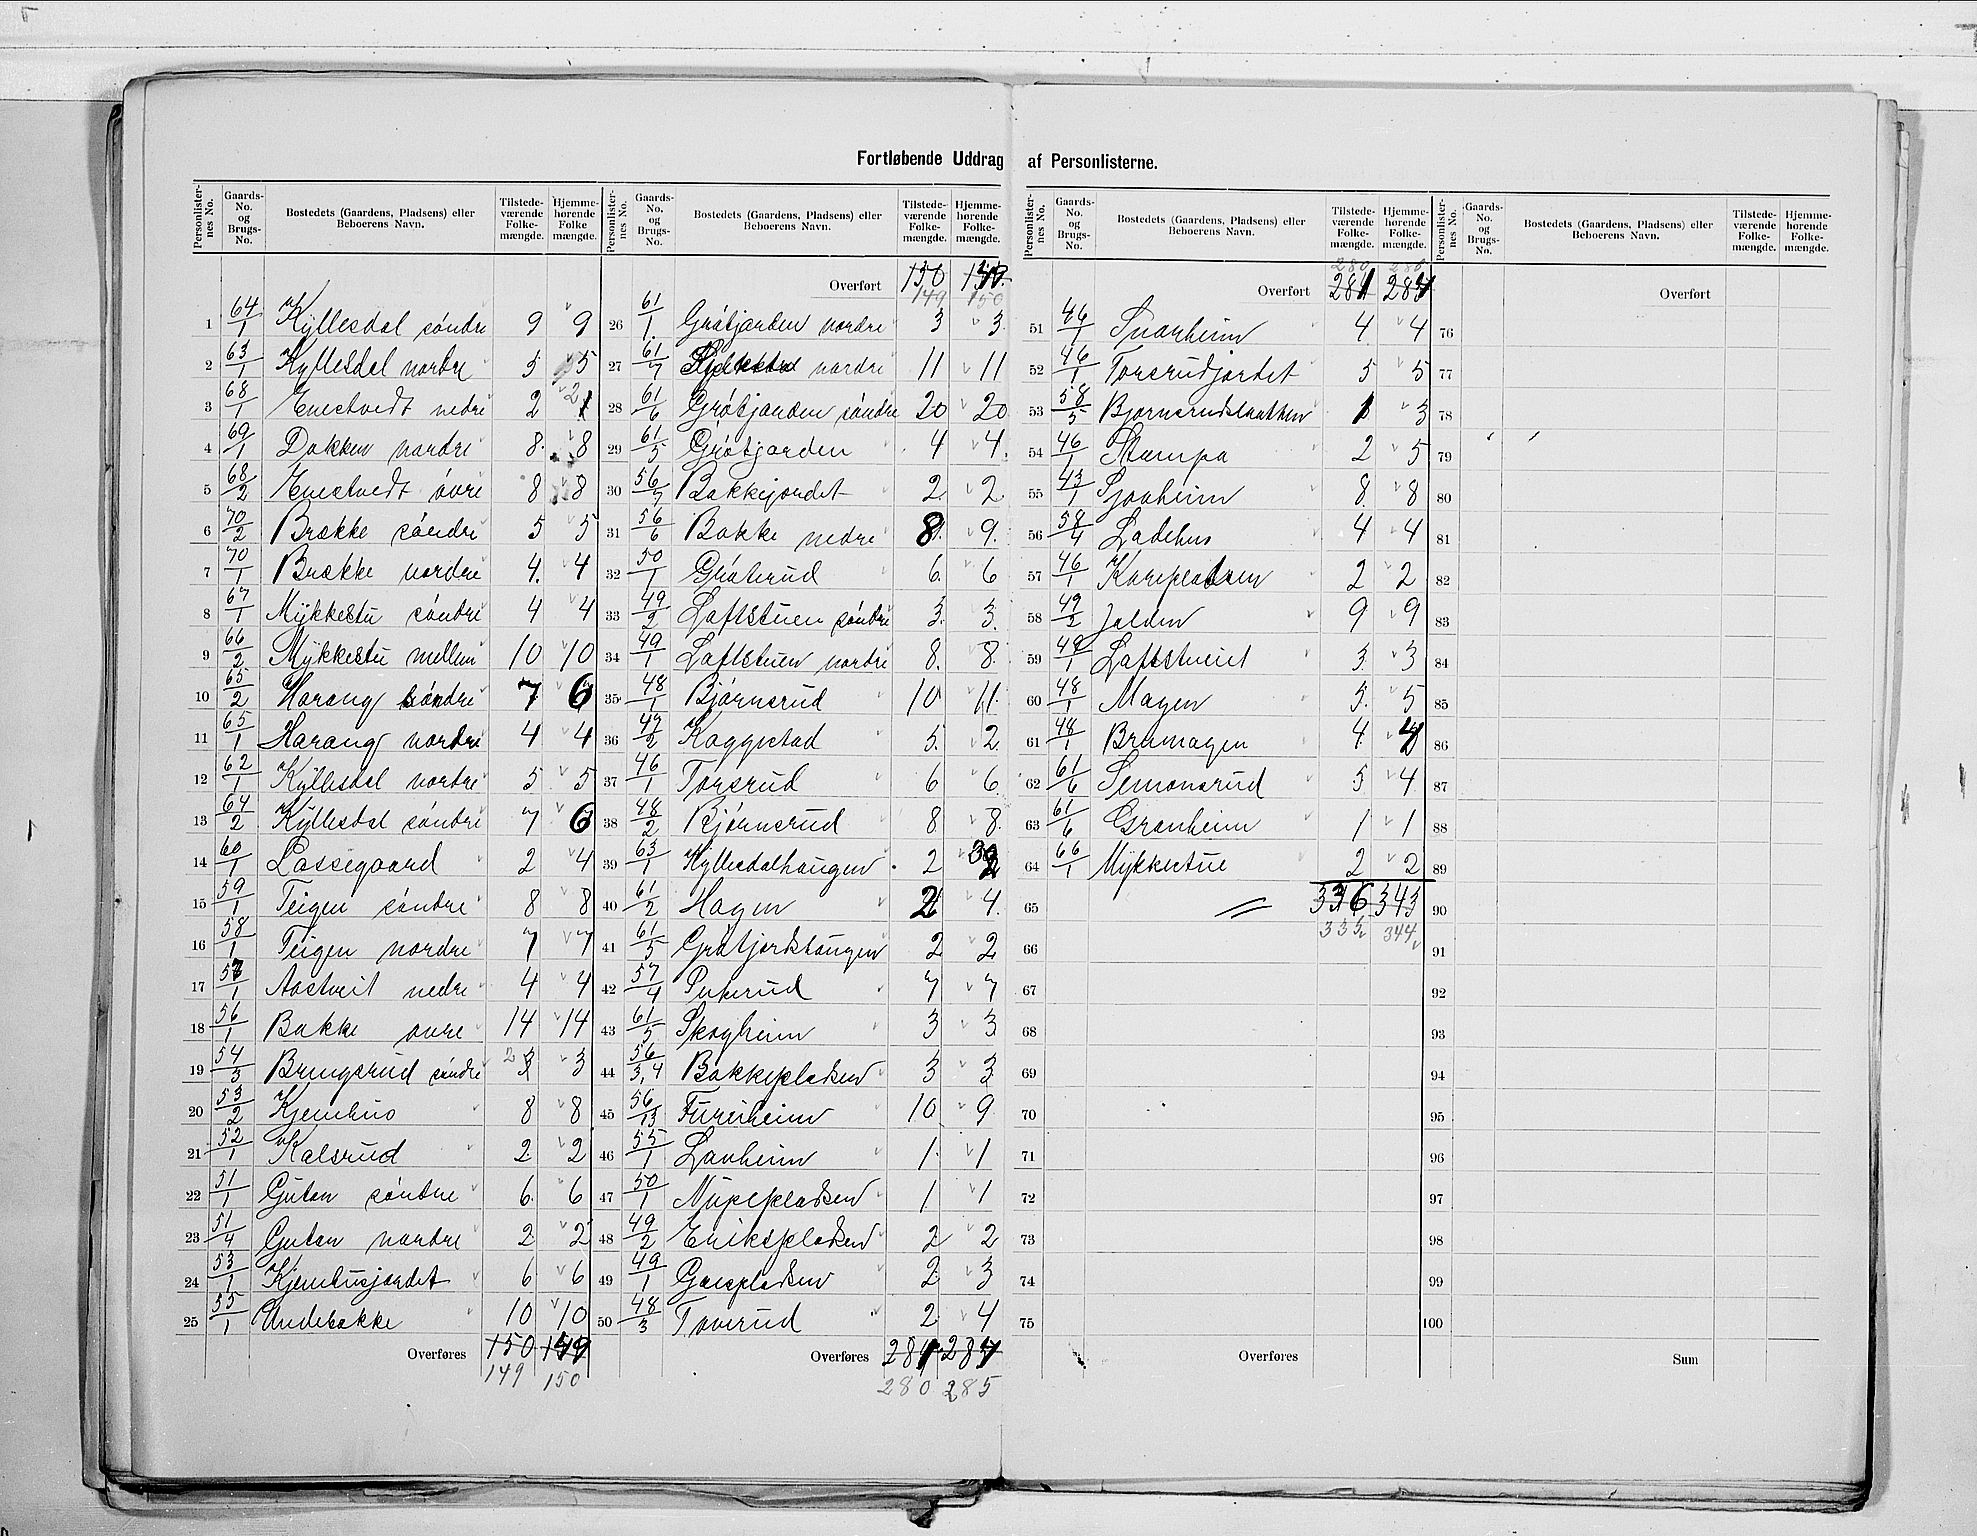 Fortløbende Uddrag af Personlisterne.
Personlister-nes No. | Gaards-No. og Brugs-No. | Bostedets (Gaardens, Pladsens) eller Beboerens Navn. | Tilstede-værende Folke-mængde. | Hjemme-hørende Folke mængde.
1 64/1 Kyllesdal søndre 9 9
2 63/1 Kyllesdal nordre 5 5
3 68/1 Enestvedt nedre 2 2
4 69/1 Dokken nordre 8 8
5 68/2 Enestvedt øvre 8 8
6 70/2 Brække søndre 5 5
7 70/1 Brække nordre 4 4
8 67/1 Mykkestu søndre 4 4
9 66/2 Mykkestu mellem 10 10
10 65/2 Harang søndre 7 6
11 65/1 Harang nordre 4 4
12 62/1 Kyllesdal nordre 5 5
13 64/2 Kyllesdal søndre 7 6
14 60/1 Lassegaard 2 4
15 59/1 Teigen søndre 8 8
16 58/1 Teigen nordre 7 7
17 57/1 Aastveit nedre 4 4
18 56/1 Bakke øvre 14 14
19 54/3 Bringsrud søndre 2 3 3
20 53/2 Kjemhus 8 8
21 52/1 Kalsrud 2 2
22 51/1 Gutan søndre 6 6
23 51/4 Gutan nordre 2 2
24 53/1 Kjemhusjordet 6 6
25 55/1 Undebakke 10 10
Overføres 150 149
149 150
Personlister-nes No. | Gaards-No. og Brugs-No. | Bostedets (Gaardens, Pladsens) eller Beboerens Navn. | Tilstede-værende Folke-mængde. | Hjemme-hørende Folke-mængde.
Overført 150 149
149 150
26 61/1 Grøtjorden nordre 3 3
27 61/7 nordre 11 11
28 61/6 Grøtjorden søndre 20 20
29 61/5 Grøtjorden 4 4
30 56/7 Bakkejordet 2 2
31 56/6 Bakke nedre 8 9
32 50/1 Grøterud 6 6
33 49/2 Loftstuen søndre 3 3
34 49/1 Loftstuen nordre 8 8
35 48/1 Bjørnsrud 10 11
36 47/2 Koggestad 5 2
37 46/1 Torsrud 6 6
38 48/2 Bjørnsrud 8 8
39 63/1 Kyllesdalhaugen 2
40 61/2 Hagen 2 4
41 61/5 Grøtjordshaugen 2 2
42 57/4 Puterud 7 7
43 61/5 Skogheim 3 3
44 56/3,4 Bakkepladsen 3 3
45 56/13 Furuheim 10 9
46 55/1 Lauheim 1 1
47 50/1 Nupepladsen 1 1
48 49/2 Erikspladsen 2 2
49 49/1 Gaaspladsen 2 3
50 48/3 Toverud 2 4
Overføres 281 284
280 285
Personlister-nes No. | Gaards-No. og Brugs-No. | Bostedets (Gaardens, Pladsens) eller Beboerens Navn. | Tilstede-værende Folke-mængde. | Hjemme-hørende Folke-mængde.
280
Overført 281 284
51 46/1 Snarheim 4 4
52 46/1 Torsrudjordet 5 5
53 58/5 Bjørnsrudslaatten 1 3
54 46/1 Stampa 2 5
55 43/1 Sjoaheim 8 8
56 58/4 Ladehus 4 4
57 46/1 Karepladsen 2 2
58 49/2 Jalden 9 9
59 49/1 Loftstueiet 3 3
60 48/1 Magen 5 5
61 48/1 Bramagen 4 4
62 61/6 Simonsrud 5 4
63 61/6 Granheim 1 1
64 66/1 Mykkestue 2 2
65 336 343
335 344
66
67
68
69
70
71
72
73
74
75
Overføres
Personlister-nes No. | Gaards-No. og Brugs-No. | Bostedets (Gaardens, Pladsens) eller Beboerens Navn. | Tilstede-værende Folke-mængde. | Hjemme-hørende Folke-mængde.
Overført
76
77
78
79
80
81
82
83
84
85
86
87
88
89
90
91
92
93
94
95
96
97
98
99
100
Sum